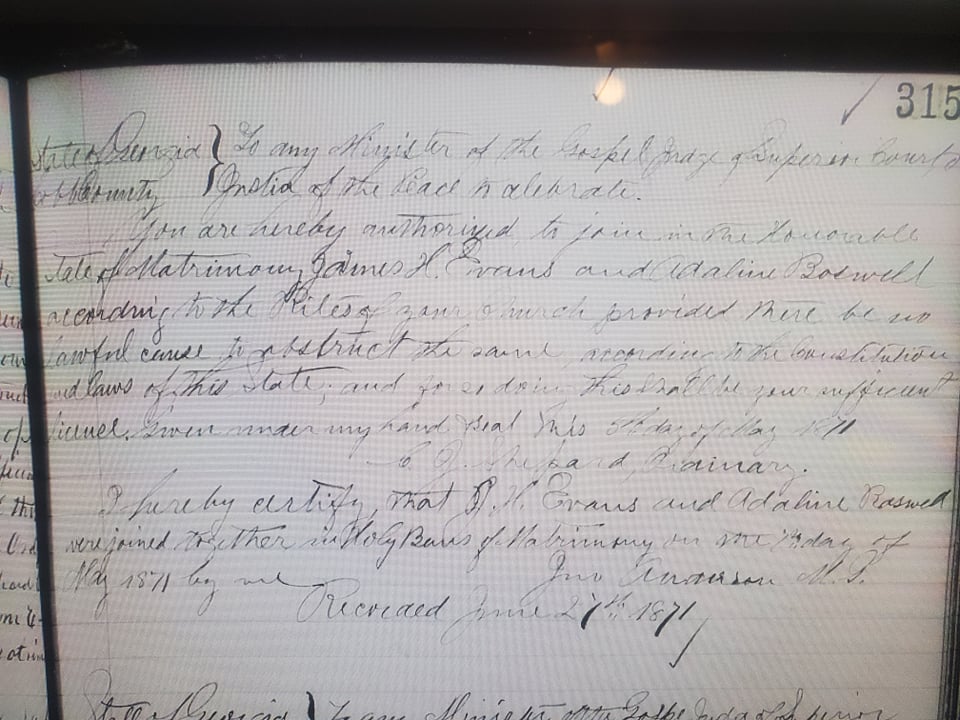 315
State of Georgia } To any Minister of the Gospel Judge of Superior Courts
Cobb County } Justice of the Peace to celebrate.
You are hereby authorized to join in the Honorable
State of Matrimony James H. Evans and Adaline Boswell
according to the Rites of your Church provided there be no
lawful cause to obstruct the same according to the Constitution
and laws of this State, and for so doing this shall be your sufficient
license. Given under my hand & seal this 5th day of May 1871
Shepard, Ordinary.
I hereby certify that J. H. Evans and Adaline
were joined together in Holy Bans of Matrimony on the day of
May 1871 by me Jno Anderson
Recorded June 27th 1871
State of Georgia } To any Minister of the Gospel Judge of Superior